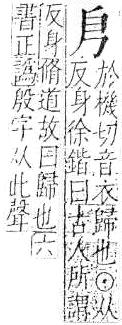 㐆
於機切音衣歸也⊙从
反身徐鍇曰古人所謂
反身脩道故曰歸也六
書正譌殷字从此聲